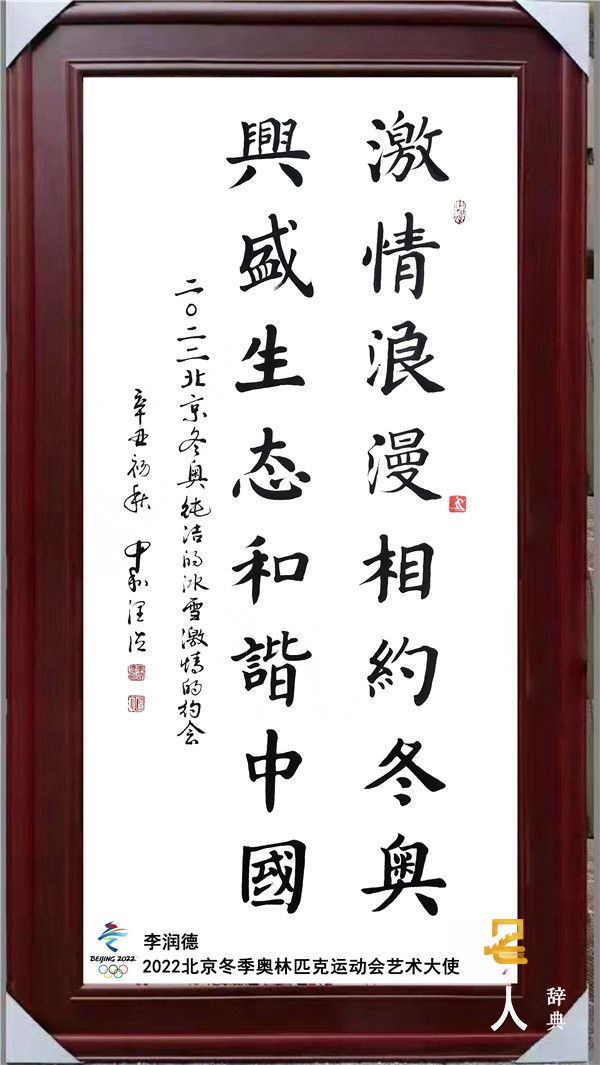 激情浪漫相約冬奥
興盛生态和諧中國
二〇二二北京冬奥纯洁的冰雪激情的约会
辛丑初秋 中和润德
李润德
2022北京冬季奥林匹克运动会艺术大使
BEIJING 2022
名人
辞典